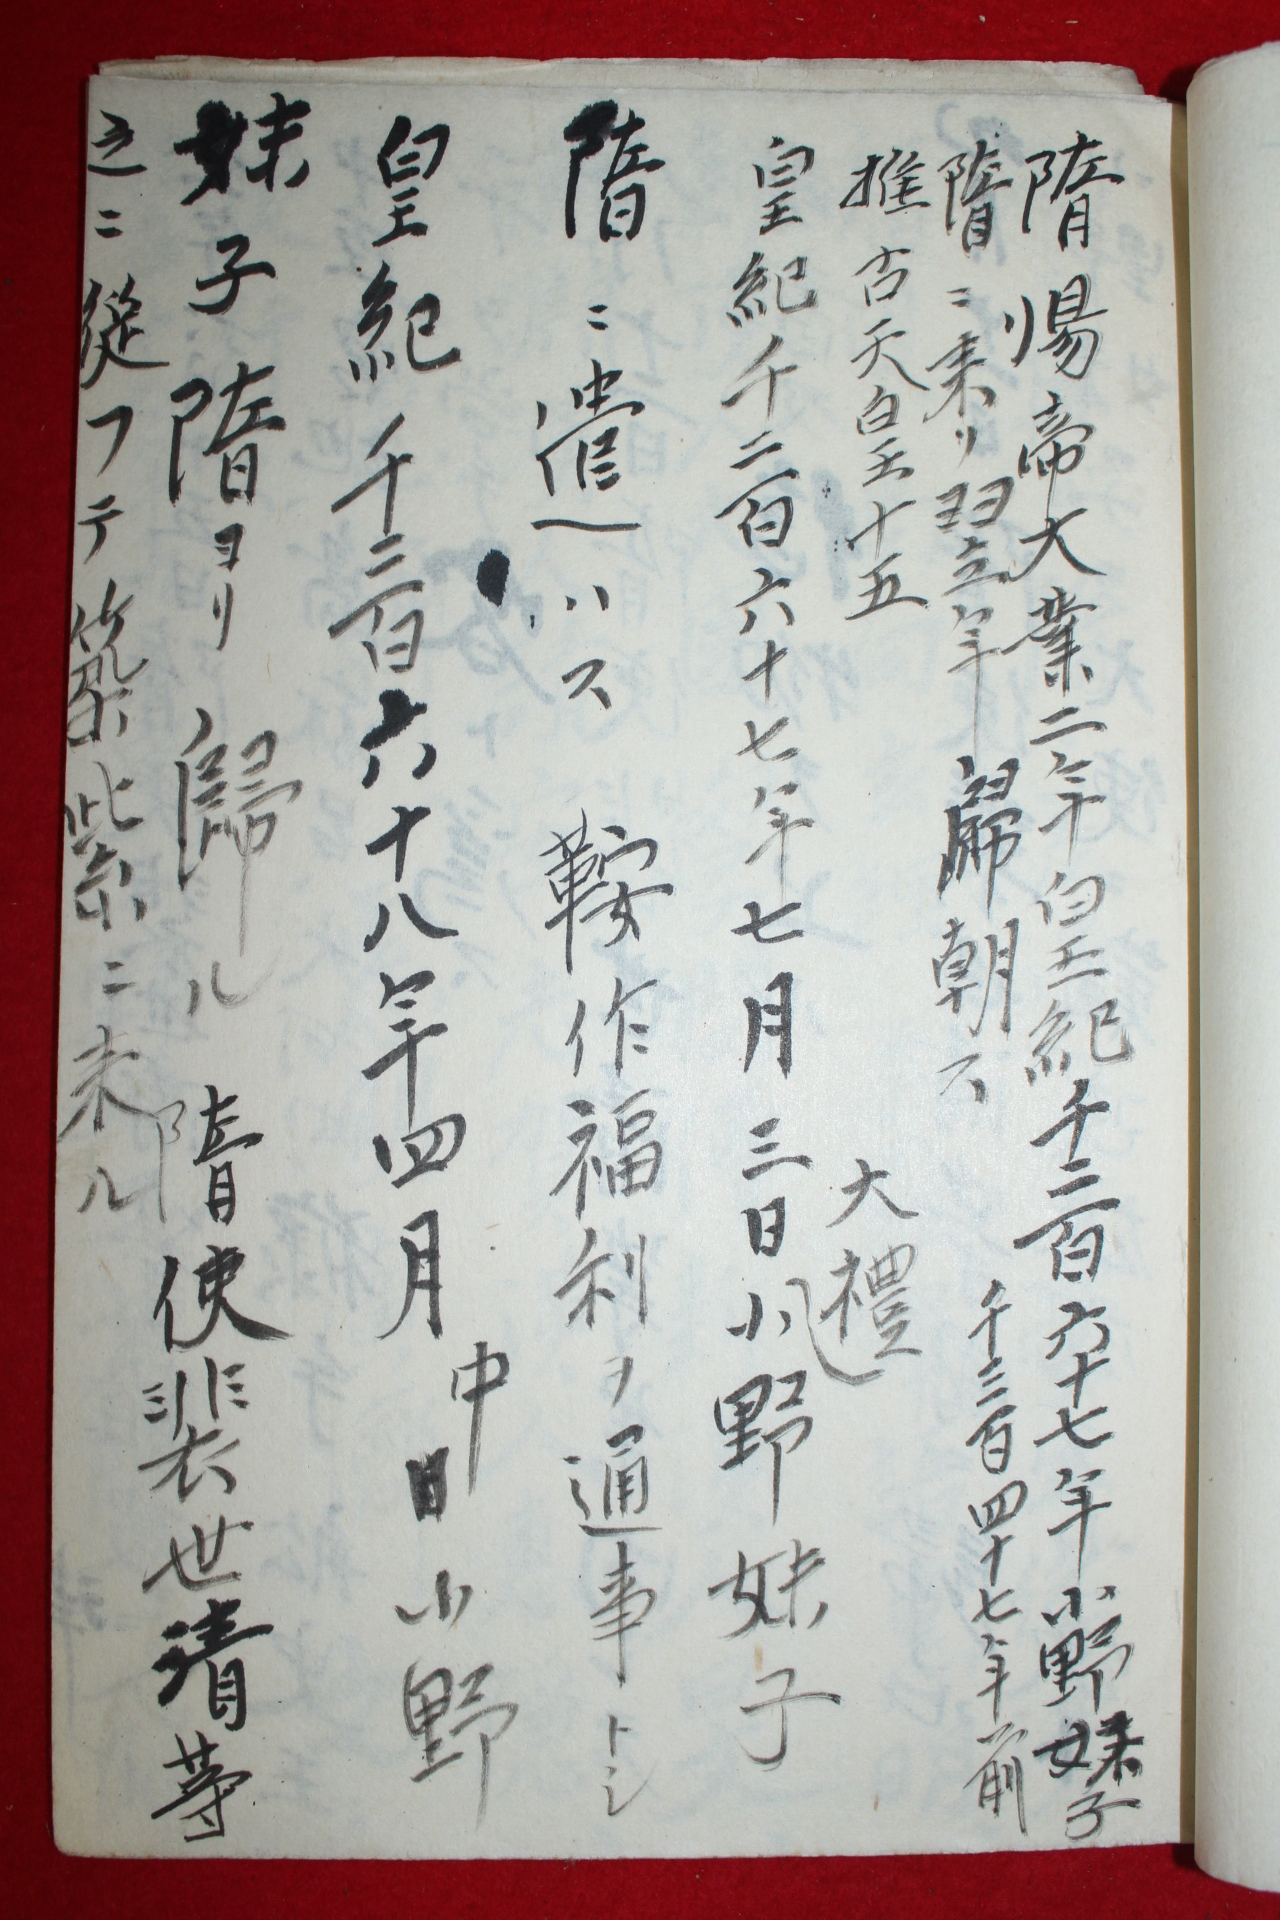 隋煬帝大業二年皇紀千二百六十七年小野妹子
隋ニ来リ翌年歸朝ス 千三百四十七年前
推古天皇十五
大禮
皇紀千二百六十七年七月三日小野妹子
隋ニ遣ハス 鞍作福利ヲ通事トシ
皇紀千二百六十八年四月中日小野
妹子隋ヨリ歸ル 隋使裴世清等
之ニ從フテ築紫ニ来ル